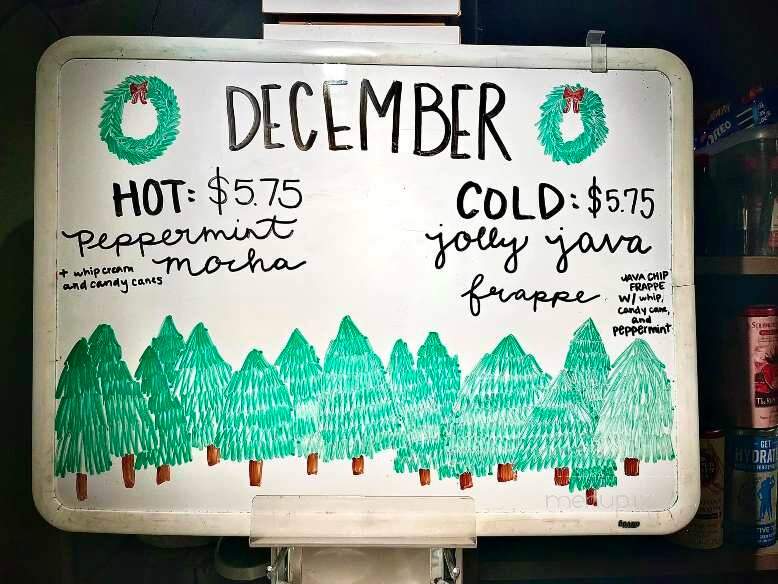 DECEMBER
HOT: $5.75
peppermint
mocha
+ whip cream
and candy canes
COLD: $5.75
jolly java
frappe
JAVA CHIP
FRAPPE
W/ whip,
candy cane,
and
peppermint
OREO
GET
HYDRAT